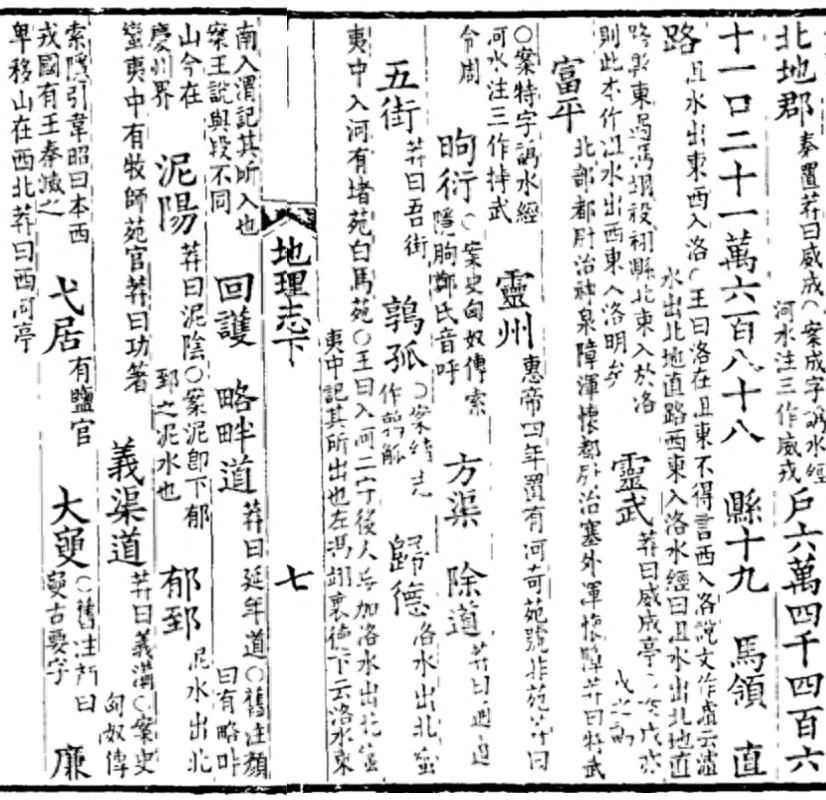 北地郡 秦置莽曰威成〇案成字譌水經河水注三作威戎 戶六萬四千四百六
十一口二十一萬六百八十八 縣十九 馬領 直
路 沮水出東西入洛〇王曰洛在沮東不得言西入洛說文作瀘云瀘水出北地直路西東入洛水經曰沮水出北地直
路縣東過馮翊祋祤縣北東入於洛則此本作沮水出西東入洛明矣 靈武 莽曰威成亭
富平 北部都尉治神泉障渾懷都尉治塞外渾懷障莽曰特武
〇案特字譌水經河水注三作持武 靈州 惠帝四年置有河奇苑號非苑莽曰
令周 昫衍 〇案史匈奴傳索隱朐鄭氏音呼 方渠 除道 莽曰通道
五街 莽曰吾街 鶉孤 〇案續志作鶉觚 歸德 洛水出北蠻
夷中入河有堵苑白馬苑〇王曰入河二字後人妄加洛水出北蠻夷中記其所出也左馮翊襃德下云洛水東
地理志下 七
南入渭記其所入也案王說與段不同 回護 略畔道 莽曰延年道〇舊注顏曰有略畔
山今在慶州界 泥陽 莽曰泥陰〇案泥卽下郁郅之泥水也 郁郅 泥水出北
蠻夷中有牧師苑官莽曰功著 義渠道 莽曰義溝〇案史匈奴傳
索隱引韋昭曰本西戎國有王秦滅之 弋居 有鹽官 大㚇 〇舊注師古曰㚇古要字 廉
卑移山在西北莽曰西河亭